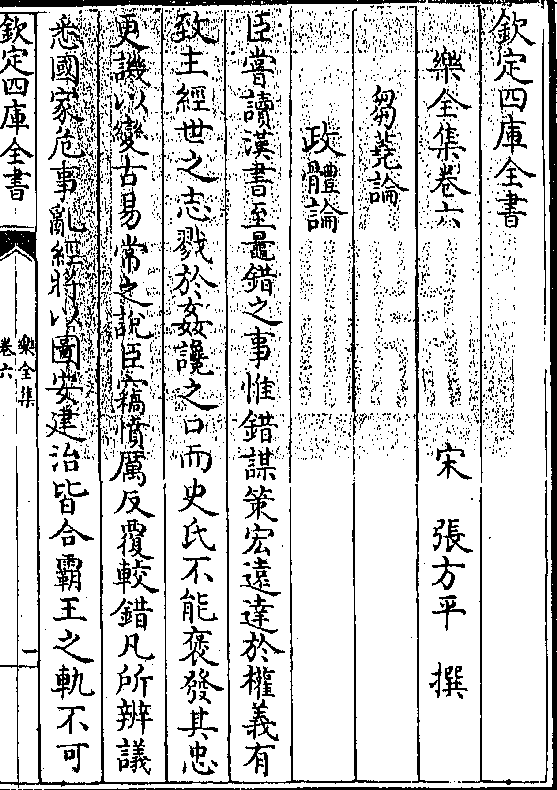 欽定四庫全書
樂全集卷六　宋　張方平　撰
芻蕘論
政體論
臣嘗讀漢書至鼂錯之事惟錯謀策宏遠達於權義有
致主經世之志戮於姦讒之口而史氏不能褒發其忠
更譏以變古易常之說臣竊憤厲反覆較錯凡所辨議
悉國家危事亂經將以圖安建治皆合霸王之軌不可
欽定四庫全書
樂全集
卷六
一